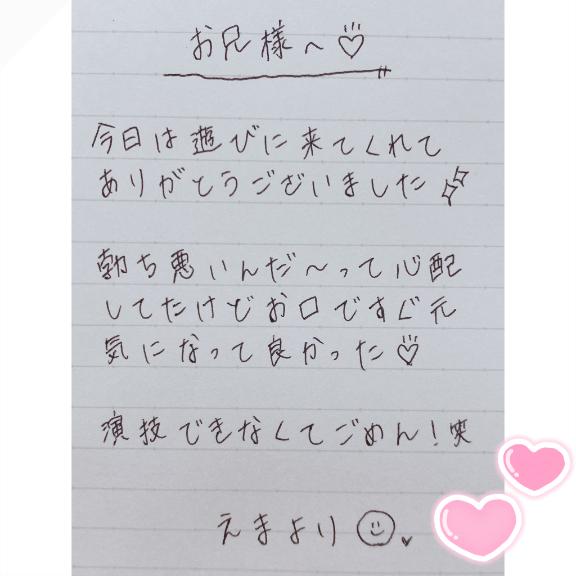 お兄様へ♡
今日は遊びに来てくれて
ありがとうございました
勃ち悪いんだ〜って心配
してたけどお口ですぐ元
気になって良かった♡
演技できなくてごめん!笑
えまより